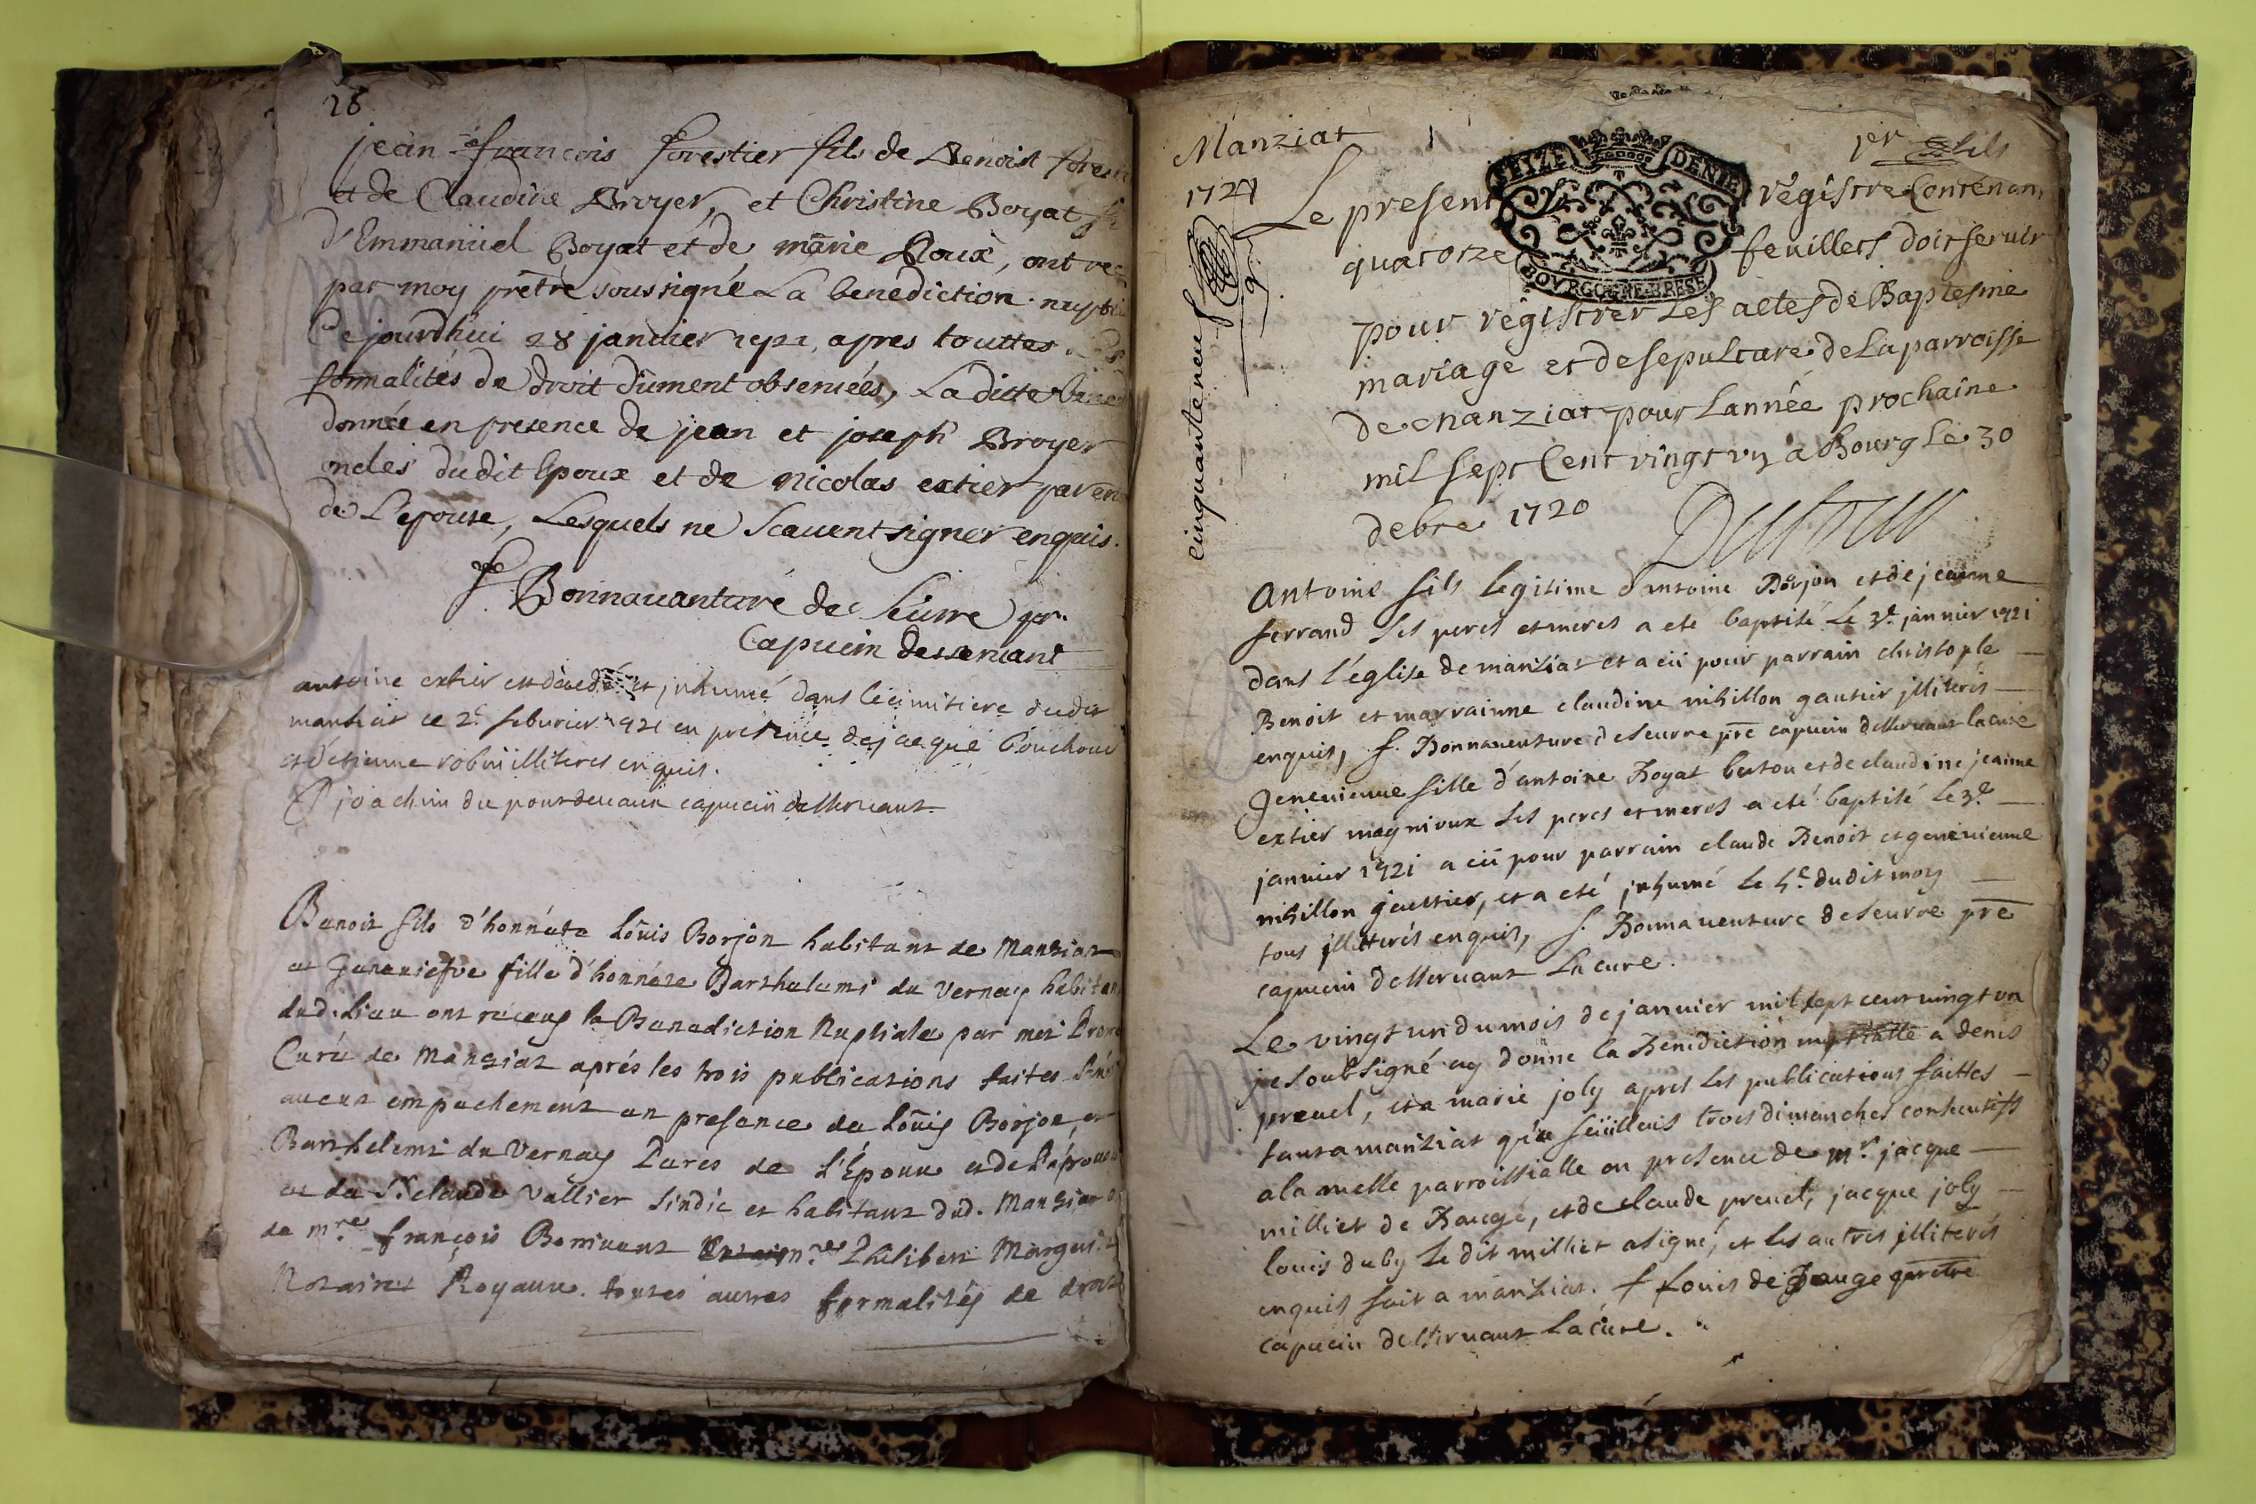 28
jean françois forestier fils de Benoist
et de Claudine Broyer, et Christine Boyat
d'Emmanuel Boyat et de marie Roux, ont
par moy prêtre soussigné La benediction
Ce jourdhui 28 janvier 1721, apres touttes
formalités de droit dûment observées, La ditte
donnée en presence de jean et joseph Broyer
oncles dudit Epoux et de nicolas extier
de L'epouse, Lesquels ne scavent signer enquis.
f. Bonnavanture de Seurre pr.
Capucin desservant
antoine extier est décedé et jnhumé dans le cimitiere dudit
manziat ce 2e feburier 1721 en présence de jacque Bouchoux
et d'etienne robin illiteres enquis.
f joachim du pontdevaux capucin desservant
Benoit fils d'honnéte Loüis Borjon habitant de Manziat
et Geneviefve fille d'honnéte Barthelemi du Vernay
dud. Lieu ont réceuz la Benediction Nuptiale par moi
Curé de Manziat aprés les trois publications faites
aucun empechement en presence de Loüis Borjon et
Barthelemi du Vernay Peres de l'Époux et de
et de Sr Claude Vallier Sindic et habitant dud. Manziat
de mre françois Bonivent mre Philibert
Notaires Royaux. toutes autres formalités de droit
Manziat
1721
1
1er
SEIZE DENIE
BOURGOGNE BRESSE
cinquante neuf
Le present régistre Contenant
quatorze feuillets doit servir
pour régistrer Les actes de Baptesme
mariage et de sepulture de La parroisse
de manziat pour Lannée prochaine
mil sept Cent vingt un a Bourg Le 30
debre 1720
Antoine fils legitime d'antoine Borjon et de jeanne
ferrand ses peres et meres a eté baptisé Le 3e janvier 1721
dans l'église de manziat et a eü pour parrain christophle
Benoit et marrainne claudine michillon gautier jlliterés
enquis, f. Bonnaventure de Seurre pre capucin desservant la cure
Genevienne fille d'antoine Boyat berton et de claudine jeanne
extier magnioux ses peres et meres a eté baptisé le 3e
janvier 1721 a eü pour parrain claude Benoit et genevienne
michillon gautier, et a eté jnhumé le 4e dudit moy
tous jlliterés enquis, f. Bonnaventure de Seurre pre
capucin desservant La cure.
Le vingt un du mois de janvier mil sept cent vingt un
je soubsigné ay donne la Benediction nuptialle a denis
prevel, et a marie joly apres les publications faittes
tant a manziat qu'a feüillens trois dimanches consecutifs
a la messe parroissialle en presence de mr. jacque
milliet de Baugé, et de claude prevel, jacque joly
louis duby le dit milliet a signé, et les autres jlliterés
enquis fait a manziat. f Louis de Bauge prêtre
capucin desservant La cure.